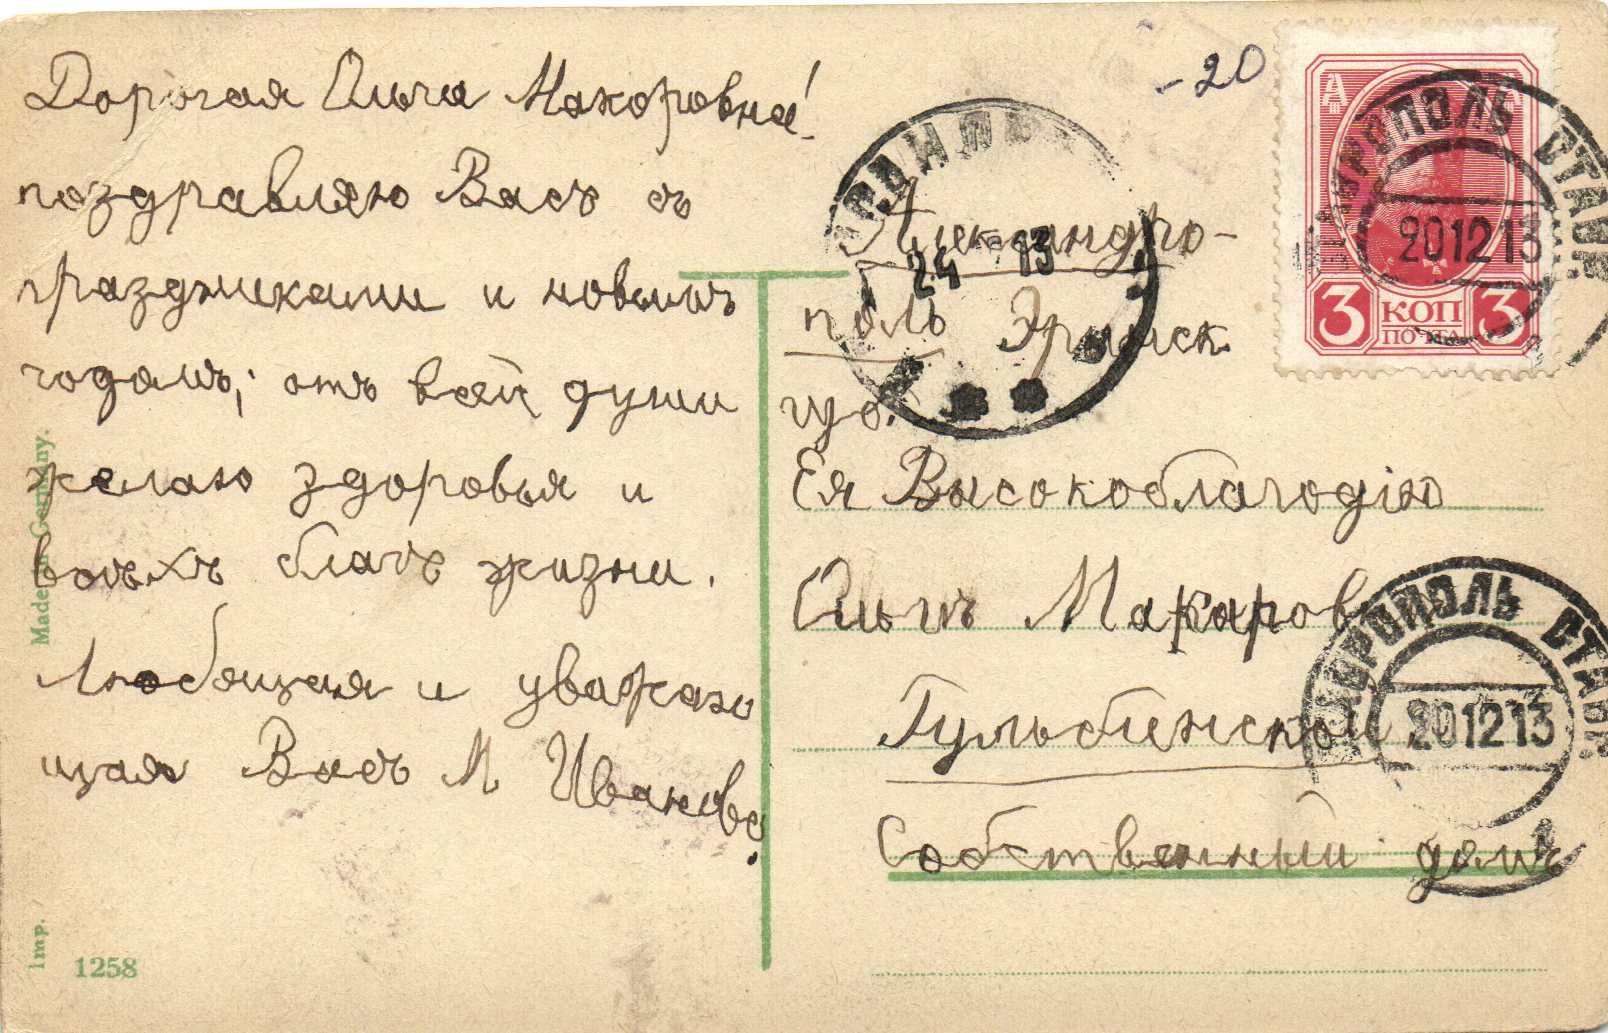 Дорогая Ольга Макоровна!
поздравляю Васъ съ
праздниками и новымъ
годомъ; отъ всей души
желаю здоровья и
всехъ благъ жизни.
Любящая и уважаю
щая Васъ М Иванова.
-20
Александро-
поль Эриванск
губ.
Ея Высокоблагодію
Ольгѣ Макаров
Гульбинской
Собственный домъ
3 КОП 3
ПОЧТА
СТАВР
20 12 13
24 13
СТАВРОПОЛЬ СТАВР
20 12 13
Made in Germany.
Imp.
1258